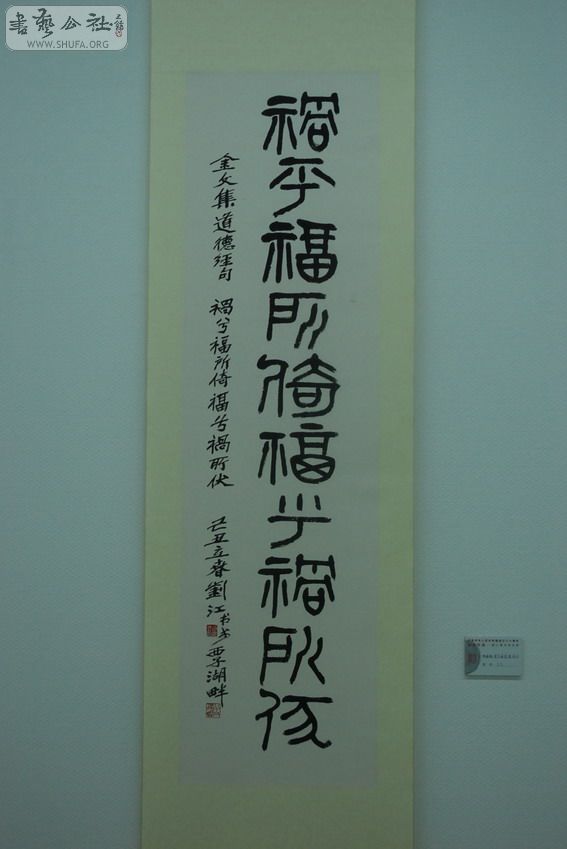 書藝公社
WWW.SHUFA.ORG
禍兮福所倚福兮禍所伏
金文集道德经句 禍兮福所倚福兮禍所伏 己丑立春劉江书于西子湖畔